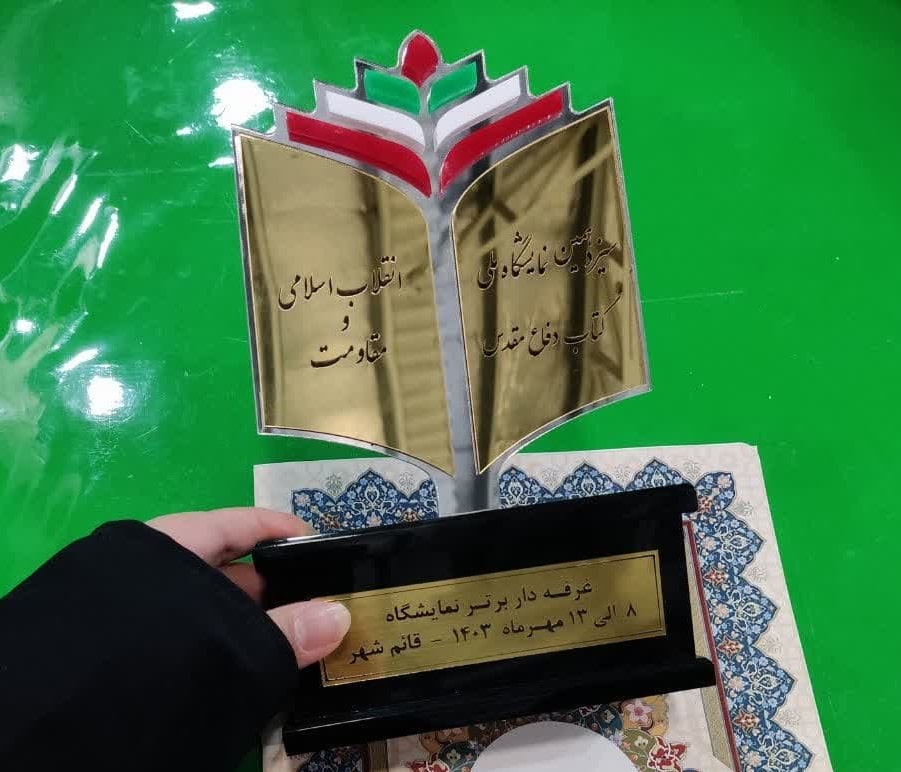 سیزدهمین نمایشگاه ملی
کتاب دفاع مقدس
انقلاب اسلامی
و
مقاومت
غرفه دار برتر نمایشگاه
۸ الی ۱۳ مهرماه ۱۴۰۳ - قائم شهر